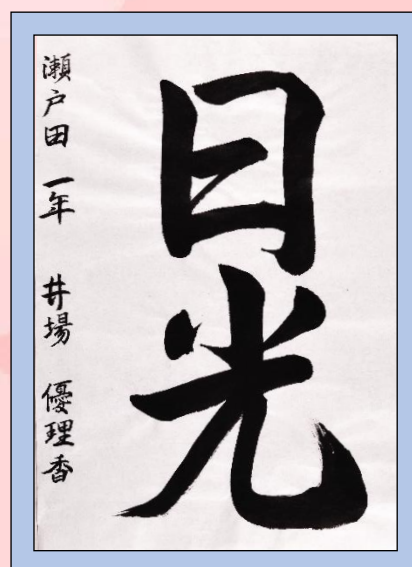 日光
瀬戸田 一年 井場 優理香